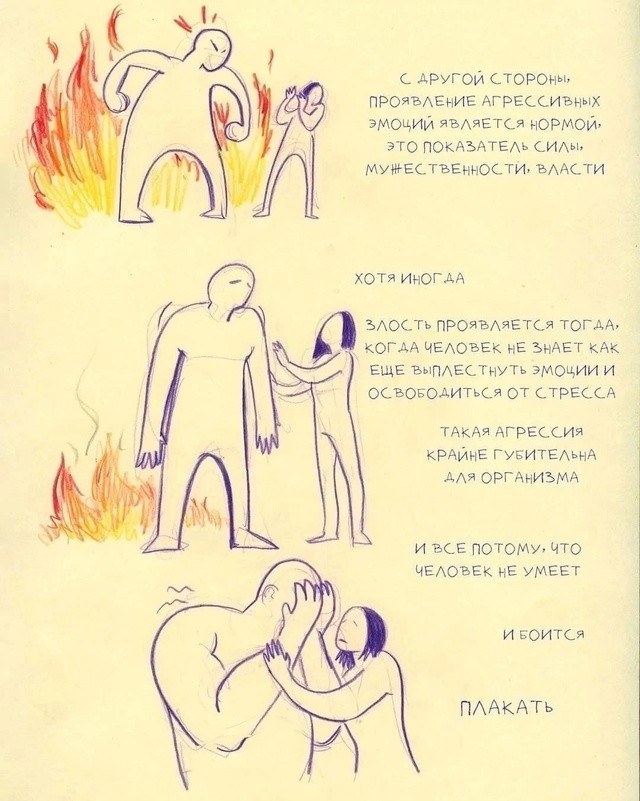 С ДРУГОЙ СТОРОНЫ,
ПРОЯВЛЕНИЕ АГРЕССИВНЫХ
ЭМОЦИЙ ЯВЛЯЕТСЯ НОРМОЙ,
ЭТО ПОКАЗАТЕЛЬ СИЛЫ,
МУЖЕСТВЕННОСТИ, ВЛАСТИ
ХОТЯ ИНОГДА
ЗЛОСТЬ ПРОЯВЛЯЕТСЯ ТОГДА,
КОГДА ЧЕЛОВЕК НЕ ЗНАЕТ КАК
ЕЩЕ ВЫПЛЕСТНУТЬ ЭМОЦИИ И
ОСВОБОДИТЬСЯ ОТ СТРЕССА
ТАКАЯ АГРЕССИЯ
КРАЙНЕ ГУБИТЕЛЬНА
ДЛЯ ОРГАНИЗМА
И ВСЕ ПОТОМУ, ЧТО
ЧЕЛОВЕК НЕ УМЕЕТ
И БОИТСЯ
ПЛАКАТЬ